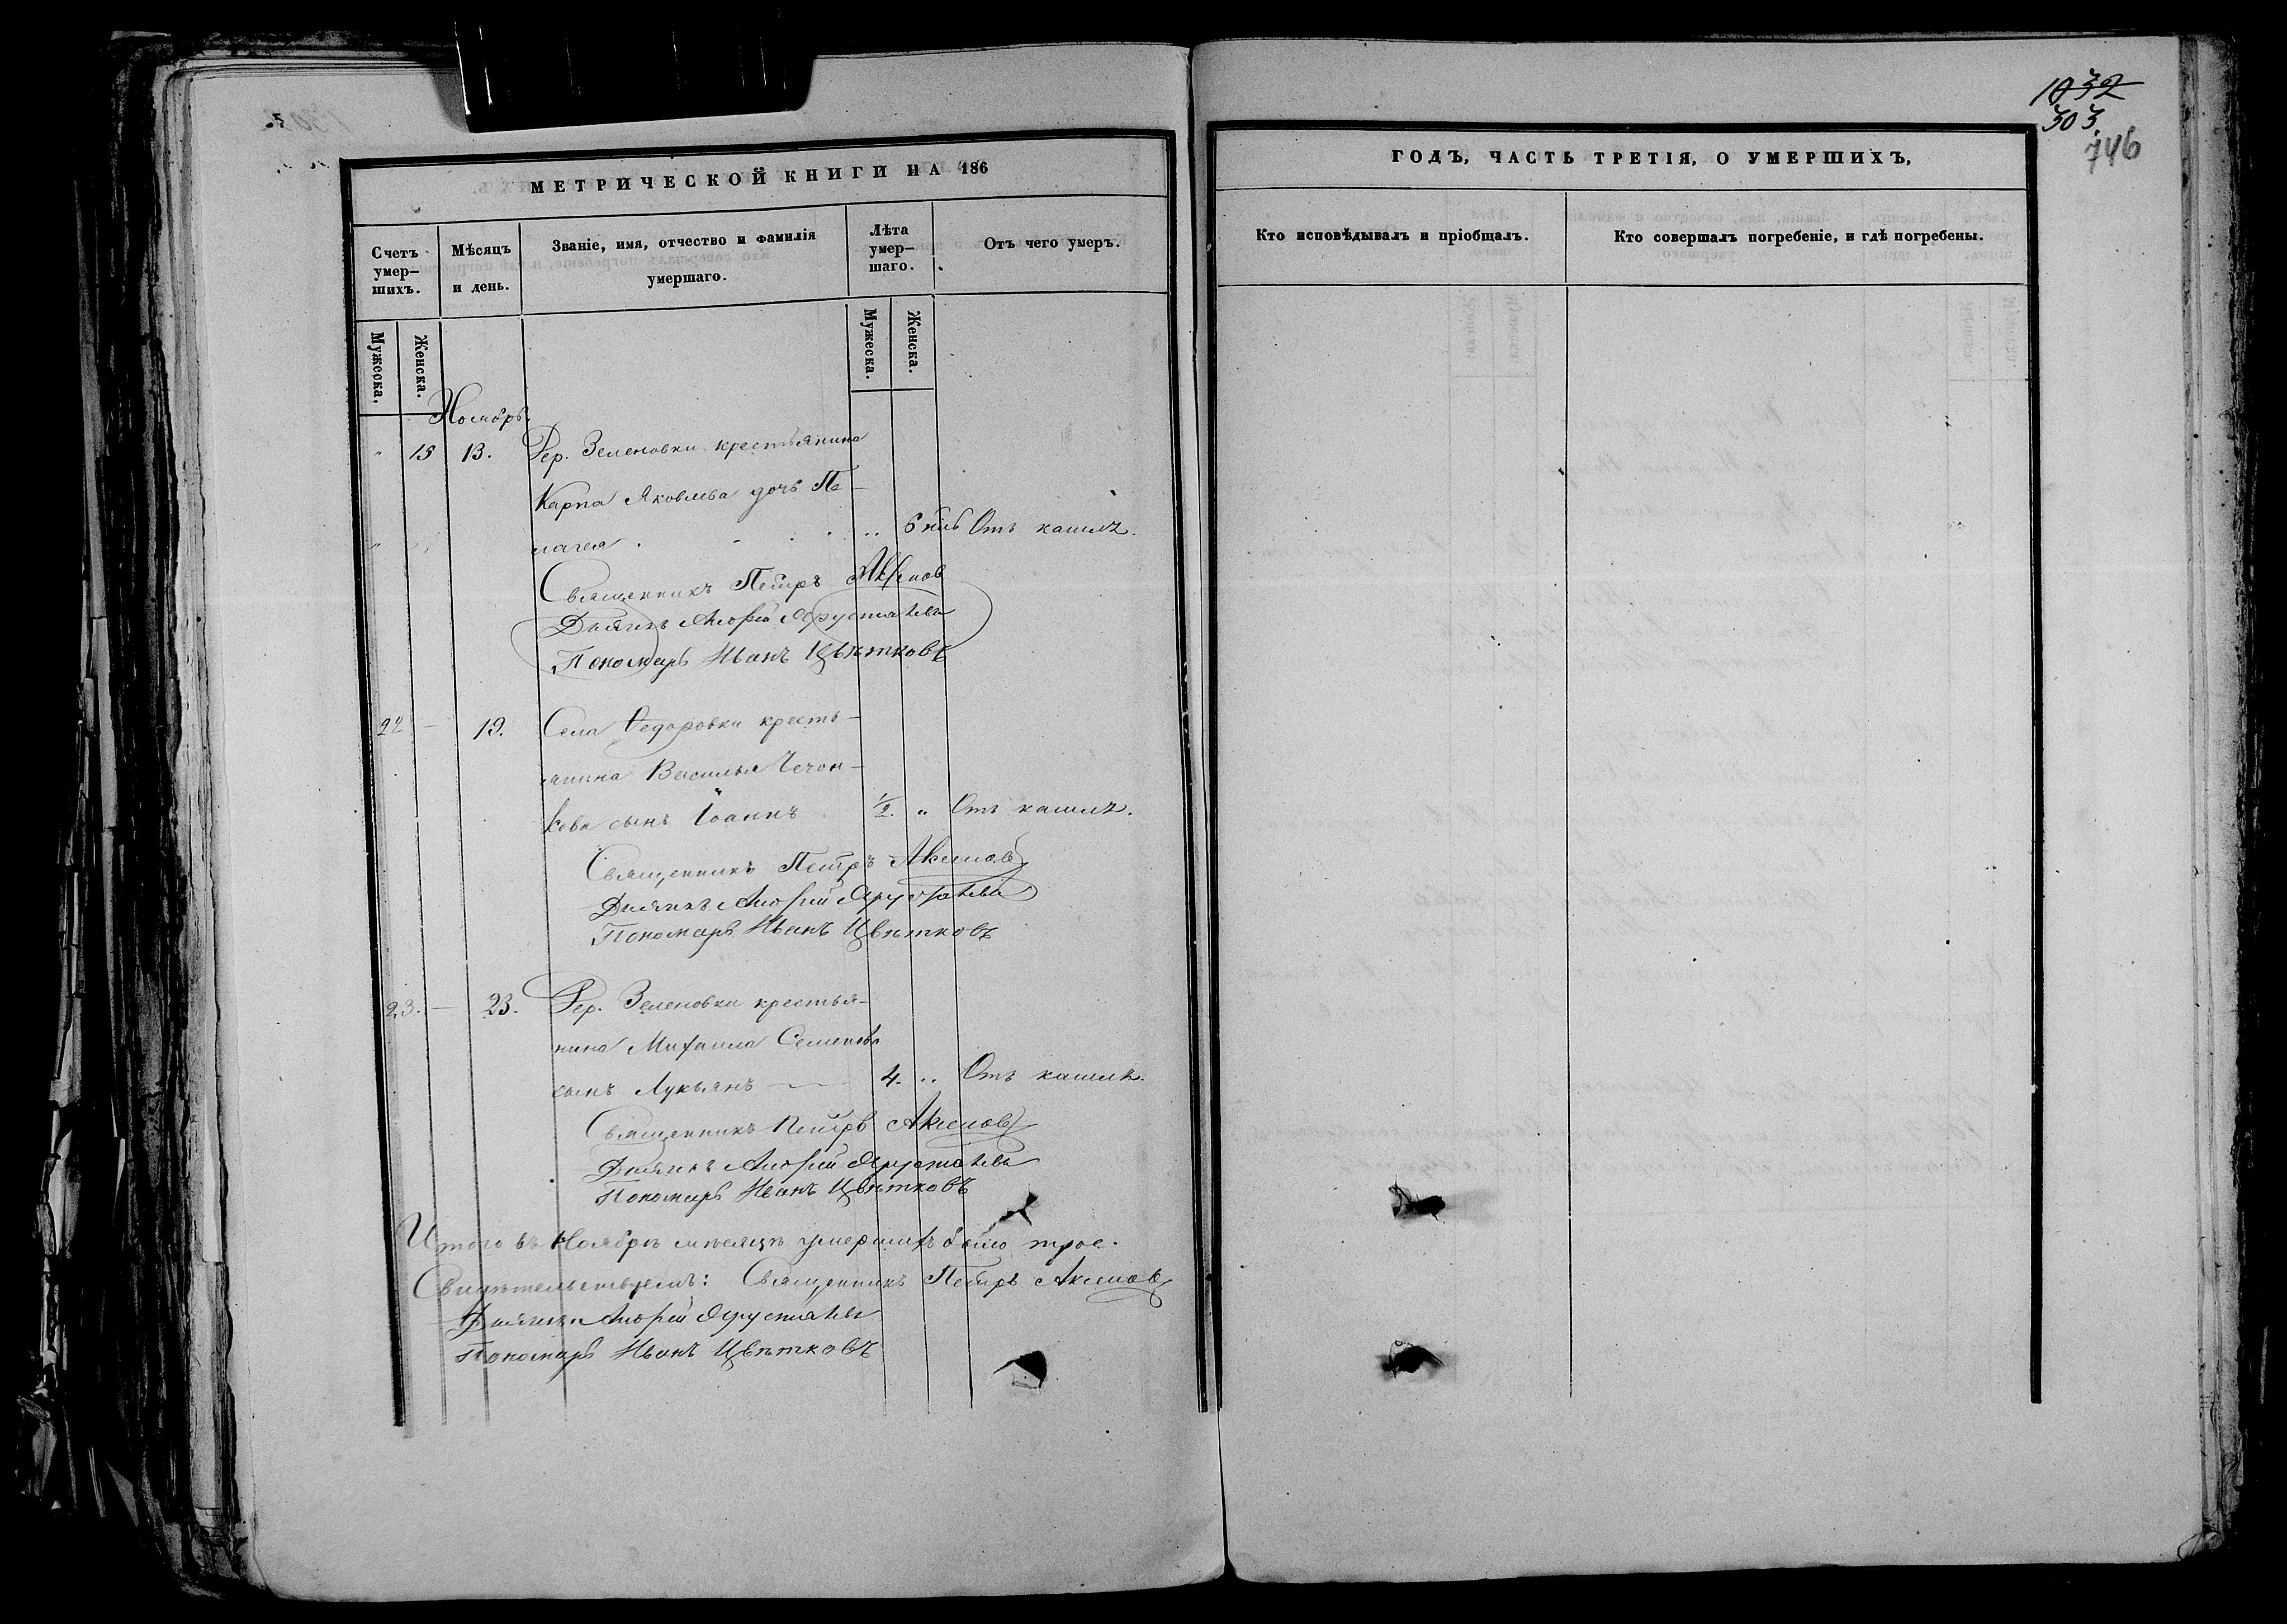 1032
303.
746
МЕТРИЧЕСКОЙ КНИГИ НА 186
ГОДЪ, ЧАСТЬ ТРЕТІЯ, О УМЕРШИХЪ,
Счетъ умер-шихъ.
Мѣсяцъ и день.
Званіе, имя, отчество и фамилія умершаго.
Лѣта умер-шаго.
Отъ чего умеръ.
Кто исповѣдывалъ и пріобщалъ.
Кто совершалъ погребеніе, и гдѣ погребены.
Мужеска.
Женска.
Мужеска.
Женска.
Ноябрь.
" 15 13. Дер. Зеленовки крестьянина
Карпа Яковлева дочь Пе-
лагея . . . . " 6 Отъ кашля.
Священникъ Петръ Аксенов
Дьячекъ
Пономарь Иванъ Цвѣтковъ
22 — 19. Села Ѳедоровки кресть-
янина Василья Чечон-
кова сынъ Іоаннъ 1/2. " Отъ кашля.
Священникъ Петръ Аксенов
Дьячекъ
Пономарь Иванъ Цвѣтковъ
23. — 23. Дер. Зеленовки крестья-
нина Михаила Семенова
сынъ Лукьянъ — 4. " Отъ кашля.
Священникъ Петръ Аксенов
Дьячекъ
Пономарь Иванъ Цвѣтковъ
Итого въ Ноябрѣ мѣсяцѣ умершихъ было трое.
Свидѣтельствуемъ: Священникъ Петръ Аксенов
Дьячекъ
Пономарь Иванъ Цвѣтковъ